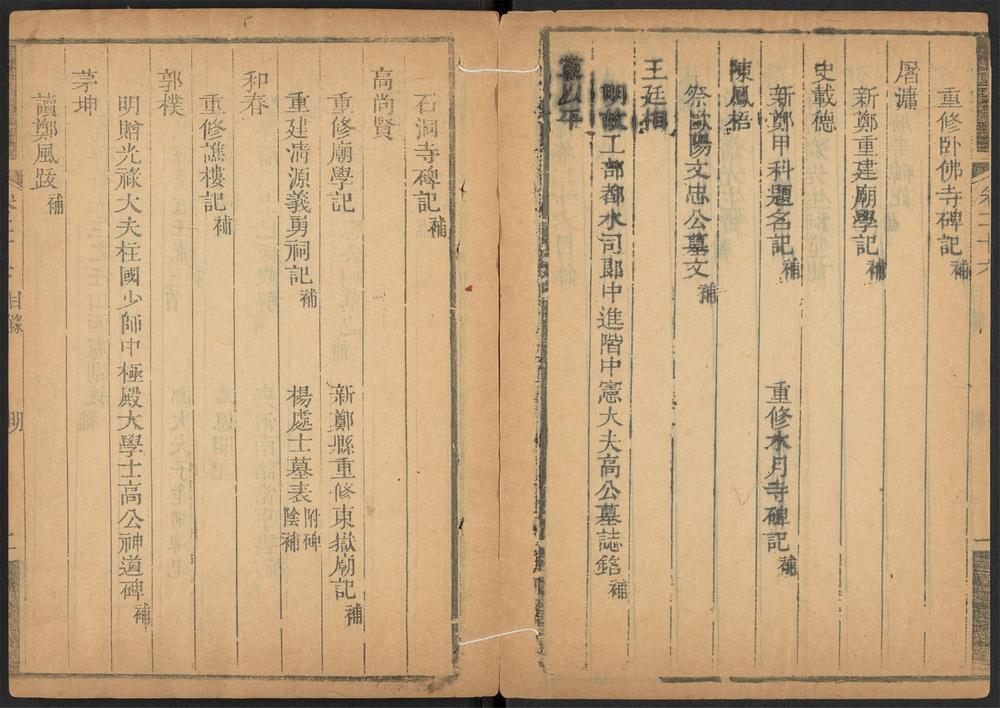 重修卧佛寺碑記補
屠滽
新鄭重建廟學記補
史載德
新鄭甲科題名記補 重修水月寺碑記補
陳鳳梧
祭歐陽文忠公墓文補
王廷相
明故工部都水司郎中進階中憲大夫高公墓誌銘補
石洞寺碑記補
高尚賢
重修廟學記 新鄭縣重修東嶽廟記補
重建清源義勇祠記補 楊處士墓表附碑陰補
和春
重修譙樓記補
郭樸
明贈光祿大夫柱國少師中極殿大學士高公神道碑補
茅坤
讀鄭風跋補
目錄